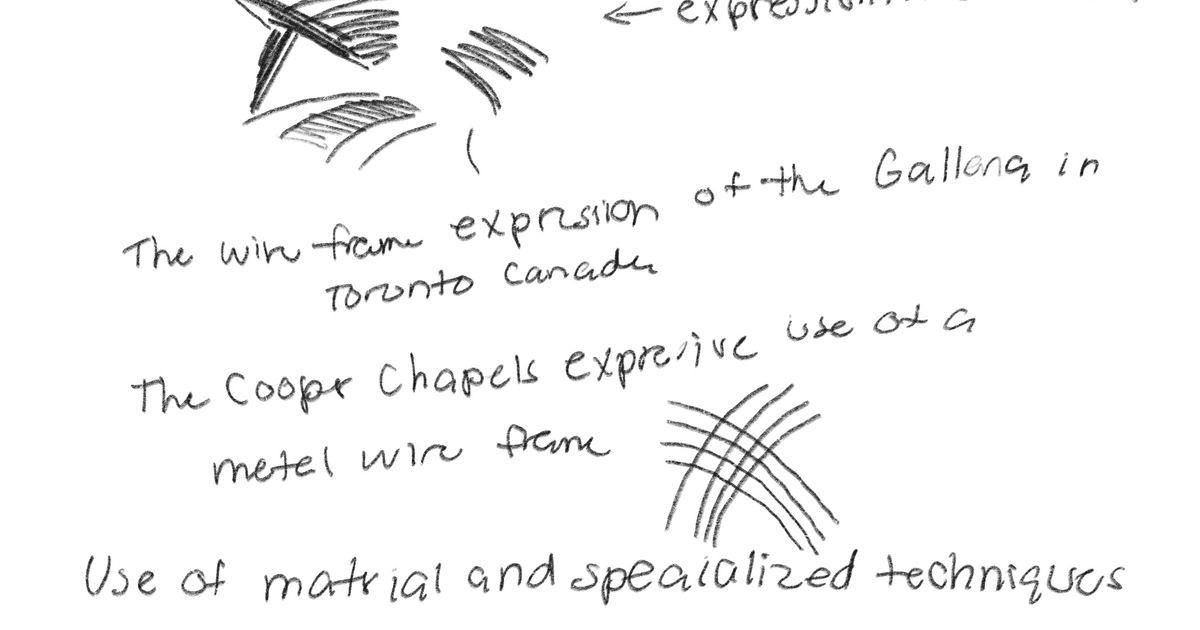 ← expression
The wire frame expression of the Gallena in
Toronto Canada
The Cooper Chapels expresive use of a
metel wire frame
Use of matrial and speaialized techniques